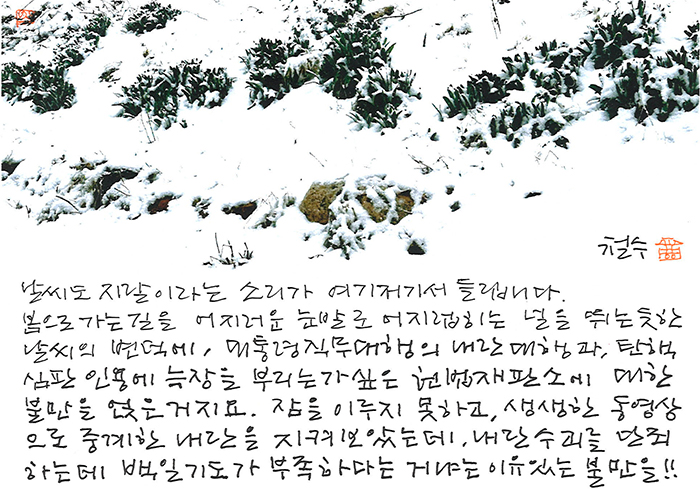 철수
날씨도 지랄이라는 소리가 여기저기서 들립니다.
봄으로 가는 길을 어지러운 눈발로 어지럽히는 널을 뛰는듯한
날씨의 변덕에, 대통령직무대행의 내란대행과, 탄핵
심판 인용에 늑장을 부리는가싶은 헌법재판소에 대한
불만을 얹은거지요. 잠을 이루지 못하고, 생생한 동영상
으로 중계한 내란을 지켜보았는데, 내란수괴를 단죄
하는데 백일기도가 부족하다는 거냐는 이유있는 불만을!!